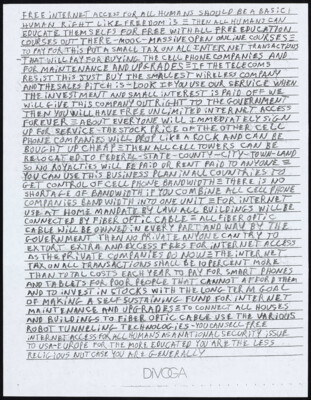 FREE INTERNET ACCESS FOR ALL HUMANS SHOULD BE A BASIC!
HUMAN RIGHT LIKE FREEDOM IS = THEN ALL HUMANS CAN
EDUCATE THEM SELFS FOR FREE WITH ALL FREE EDUCATION
COURSES OUT THERE - MOOC - MASSIVE OPEN ONLINE COURSES =
TO PAY FOR THIS PUT A SMALL TAX ON ALL INTERNET TRANSACTIONS
THAT WILL PAY FOR BUYING THE CELL PHONE COMPANIES AND
FOR MAINTENANCE AND UPGRADES = IF THE TELECOMS
RESIST THIS JUST BUY THE SMALLEST WIRELESS COMPANY
AND THE SALES PITCH IS - LOOK IF YOU USE OUR SERVICE WHEN
THE INVESTMENT AND SMALL INTEREST IS PAID OFF WE
WILL GIVE THIS COMPANY OUTRIGHT TO THE GOVERNMENT
THEN YOU WILL HAVE FREE UNLIMITED INTERNET ACCESS
FOREVER = ABOUT EVERYONE WILL IMMEDIATELY SIGN
UP FOR SERVICE - THE STOCK PRICE OF THE OTHER CELL
PHONE COMPANIES WILL DROP LIKE A ROCK AND CAN BE
BOUGHT UP CHEAP = THEN ALL CELL TOWERS CAN BE
RELOCATED TO FEDERAL - STATE - COUNTY - CITY - TOWN - LAND
SO NO ROYALTIES WILL BE PAID OR RENT PAID TO ANYONE =
YOU CAN USE THIS BUSINESS PLAN IN ALL COUNTRIES TO
GET CONTROL OF CELL PHONE BANDWIDTH = THERE IS NO
SHORTAGE OF BANDWIDTH IF YOU COMBINE ALL CELL PHONE
COMPANIES BANDWIDTH INTO ONE UNIT = FOR INTERNET
USE AT HOME MANDATE BY LAW ALL BUILDINGS WILL BE
CONNECTED BY FIBER OPTIC CABLE = ALL FIBER OPTIC
CABLE WILL BE OWNED IN EVERY PART AND WAY BY THE
GOVERNMENT THEN NO PRIVATE ANYONE CAN TRY TO
EXTORT EXTRA AND EXCESS FEES FOR INTERNET ACCESS
AS THE PRIVATE COMPANIES DO NOW = THE INTERNET
TAX ON ALL TRANSACTIONS SHALL BE 10 PERCENT MORE
THAN TOTAL COSTS EACH YEAR TO PAY FOR SMART PHONES
AND TABLETS FOR POOR PEOPLE THAT CANNOT AFFORD THEM
AND TO INVEST IN STOCKS WITH THE LONG TERM GOAL
OF MAKING A SELF SUSTAINING FUND FOR INTERNET
MAINTENANCE AND UPGRADES = TO CONNECT ALL HOUSES
AND BUILDINGS TO FIBER OPTIC CABLE USE THE VARIOUS
ROBOT TUNNELING TECHNOLOGIES - YOU CAN SELL FREE
INTERNET ACCESS FOR ALL HUMANS AS A NATIONAL SECURITY ISSUE
TO USA - EUROPE FOR THE MORE EDUCATED YOU ARE THE LESS
RELIGIOUS NUT CASE YOU ARE GENERALLY
DIVOGA